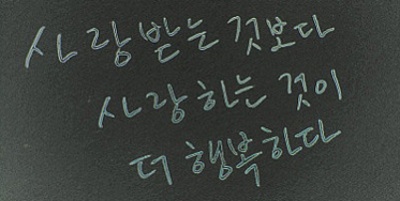 사랑받는 것보다
사랑하는 것이
더 행복하다